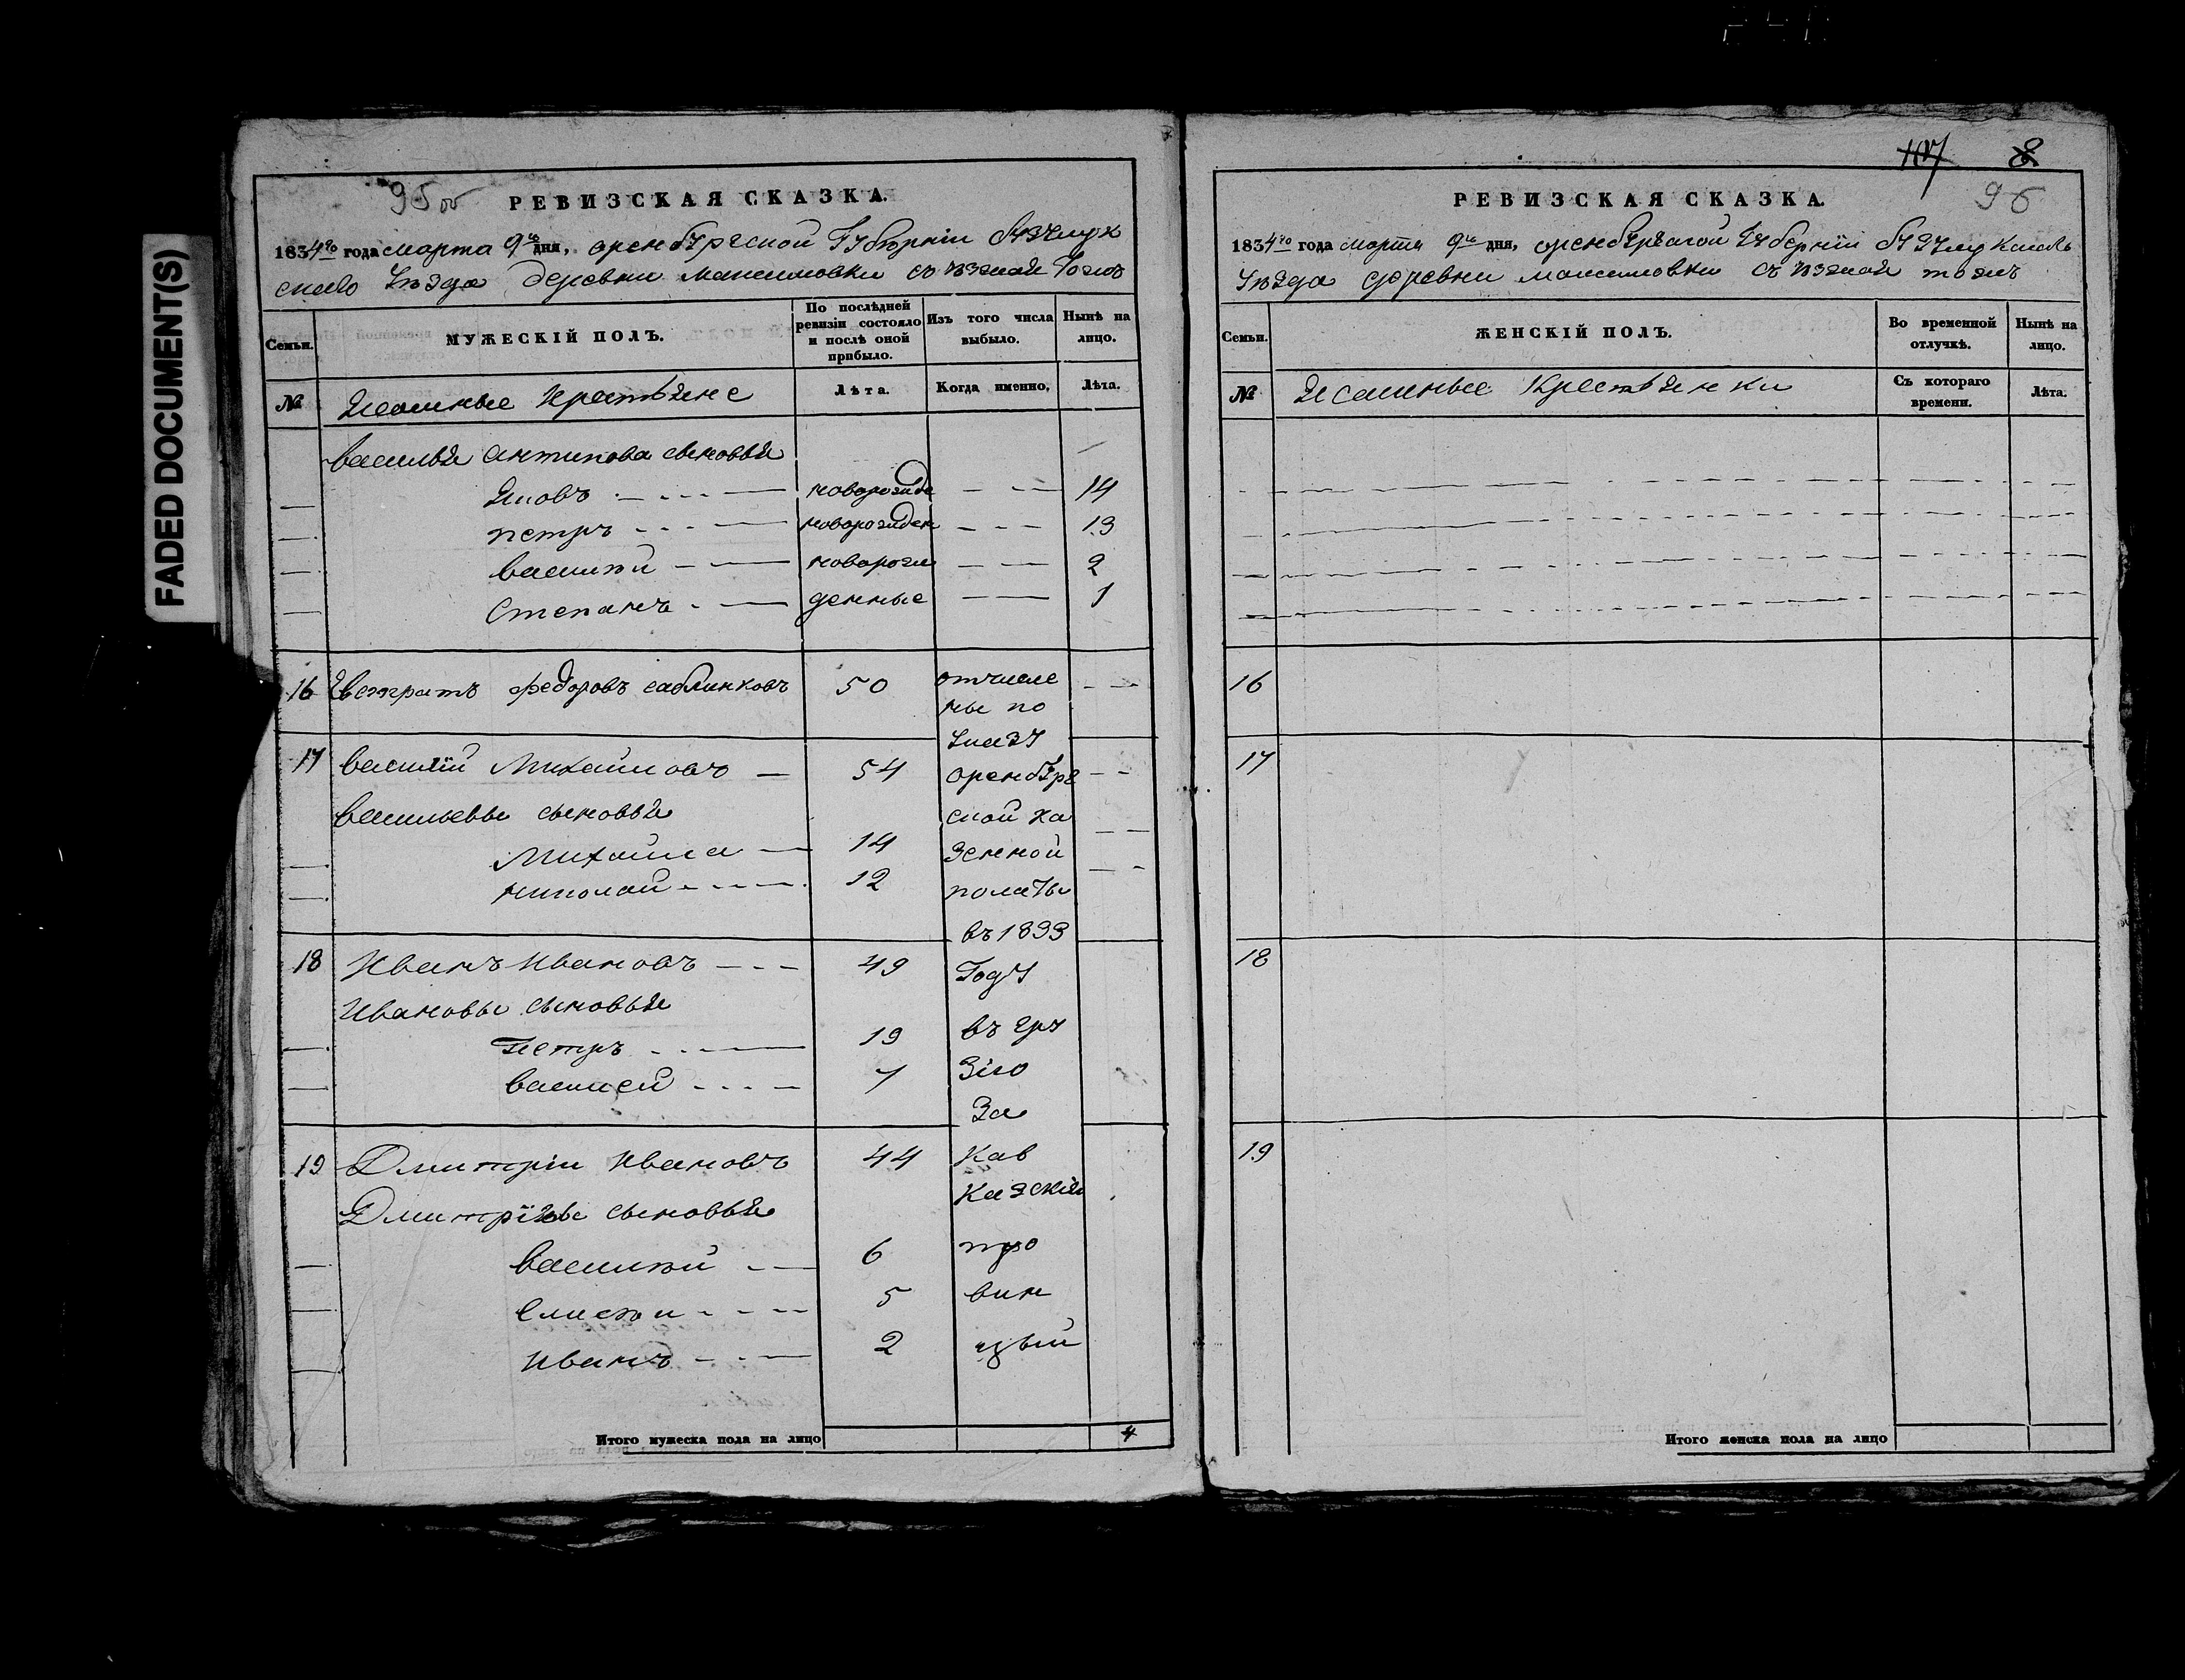 FADED DOCUMENT(S)
95 об
РЕВИЗСКАЯ СКАЗКА.
1834го года марта 9го дня, оренбургской Губернии Бузулук
скаго Уезда деревни максимовки
Семьи.
МУЖЕСКІЙ ПОЛЪ.
По послѣдней ревизіи состояло и послѣ оной прибыло.
Изъ того числа выбыло.
Нынѣ на лицо.
№
Ясашные крестьяне
Лѣта.
Когда именно.
Лѣта.
василья антипова сыновья
Яковъ новорожде 14
петръ новорожден 13
василии новорож 2
Степанъ денные 1
16 Евстратъ федоровъ саблинковъ 50 отчисле
ны по
указу
17 василіи Михаиловъ 54 оренбург
васильевы сыновья ской ка
Михаила 14 зенной
николаи 12 полаты
въ 1833
18 Иванъ Ивановъ 49 Году
Ивановы сыновья
Петръ 19 въ гру
василеи 7 зію
За
19 Дмитріи Ивановъ 44 Кав
казскія
Дмитріевы сыновья
василии 6 про
5 вин
Иванъ 2 цыи
Итого мужеска пола на лицо 4
107 8
96
РЕВИЗСКАЯ СКАЗКА.
1834го года марта 9го дня, оренбургской Губерніи Бузулукскаго
Уезда деревни максимовки
Семьи.
ЖЕНСКІЙ ПОЛЪ.
Во временной отлучкѣ.
Нынѣ на лицо.
№
Ясашные Крестьянки
Съ котораго времени.
Лѣта.
16
17
18
19
Итого женска пола на лицо